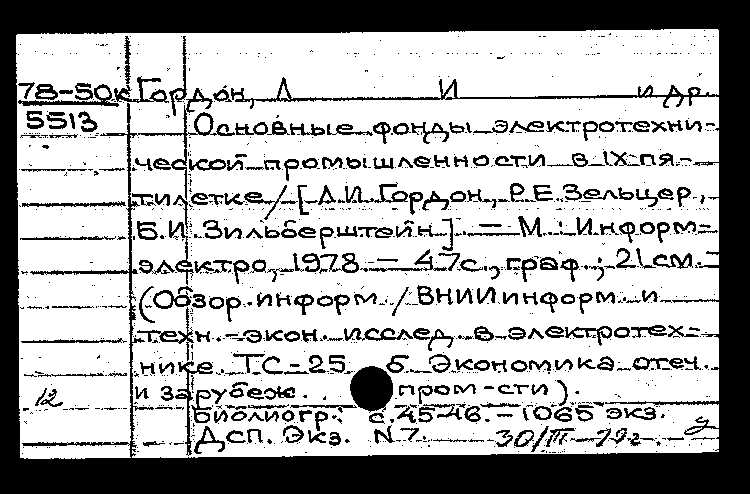 78-50к Гордон, Л И и др.
5513 Основные фонды электротехни-
ческой промышленности в IX пя-
тилетке / [Л.И. Гордон, Р.Е. Зельцер,
Б.И. Зильберштейн] . — М. : Информ-
электро, 1978. — 47 с., граф.; 21 см. —
(Обзор. информ. / ВНИИ информ. и
техн.-экон. исслед. в электротех-
нике. ТС-25 б Экономика отеч.
12 и заружеб. . пром-сти).
Библиогр.: с. 45-46. — 1065 экз.
ДСП. Экз. N 7. 30/III-79г.